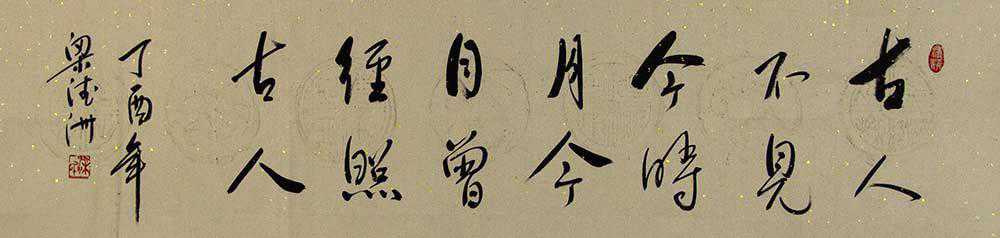 古人
不見
今時
月今
月曾
經照
古人
丁酉年
梁